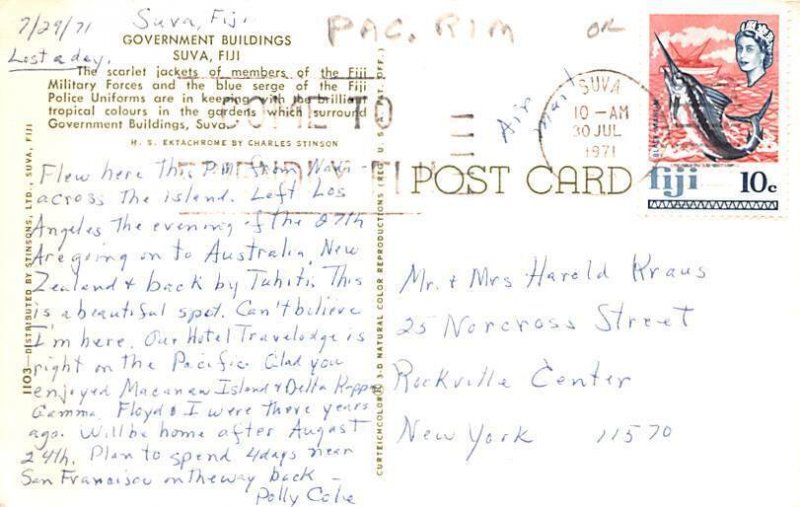 7/29/71 Suva, Fiji
Lost a day.
PAC. RIM OR
GOVERNMENT BUILDINGS
SUVA, FIJI
The scarlet jackets of members of the Fiji
Military Forces and the blue serge of the Fiji
Police Uniforms are in keeping with the brilliant
tropical colours in the gardens which surround
Government Buildings, Suva.
H. S. EKTACHROME BY CHARLES STINSON
COME TO
FIJI
Flew here this P.M. from Nadi
across the island. Left Los
Angeles the evening of the 27th
Are going on to Australia, New
Zealand & back by Tahiti. This
is a beautiful spot. Can't bilieve
I'm here. Our Hotel Travelodge is
right on the Pacific. Glad you
enjoyed Island & Delta Kappa
Gamma. Floyd & I were there years
ago. Will be home after August
24th. Plan to spend 4 days near
San Francisco on the way back –
Polly
1103—DISTRIBUTED BY STINSONS, LTD., SUVA, FIJI
CURTEICHCOLOR 3-D NATURAL COLOR REPRODUCTIONS (REG. U. S. PAT. OFF.)
Air
Mail
SUVA
10 - AM
30 JUL
1971
BLACK MARLIN
fiji 10c
POST CARD
Mr. & Mrs Harold Kraus
25 Norcross Street
Rockville Center
New York 11570